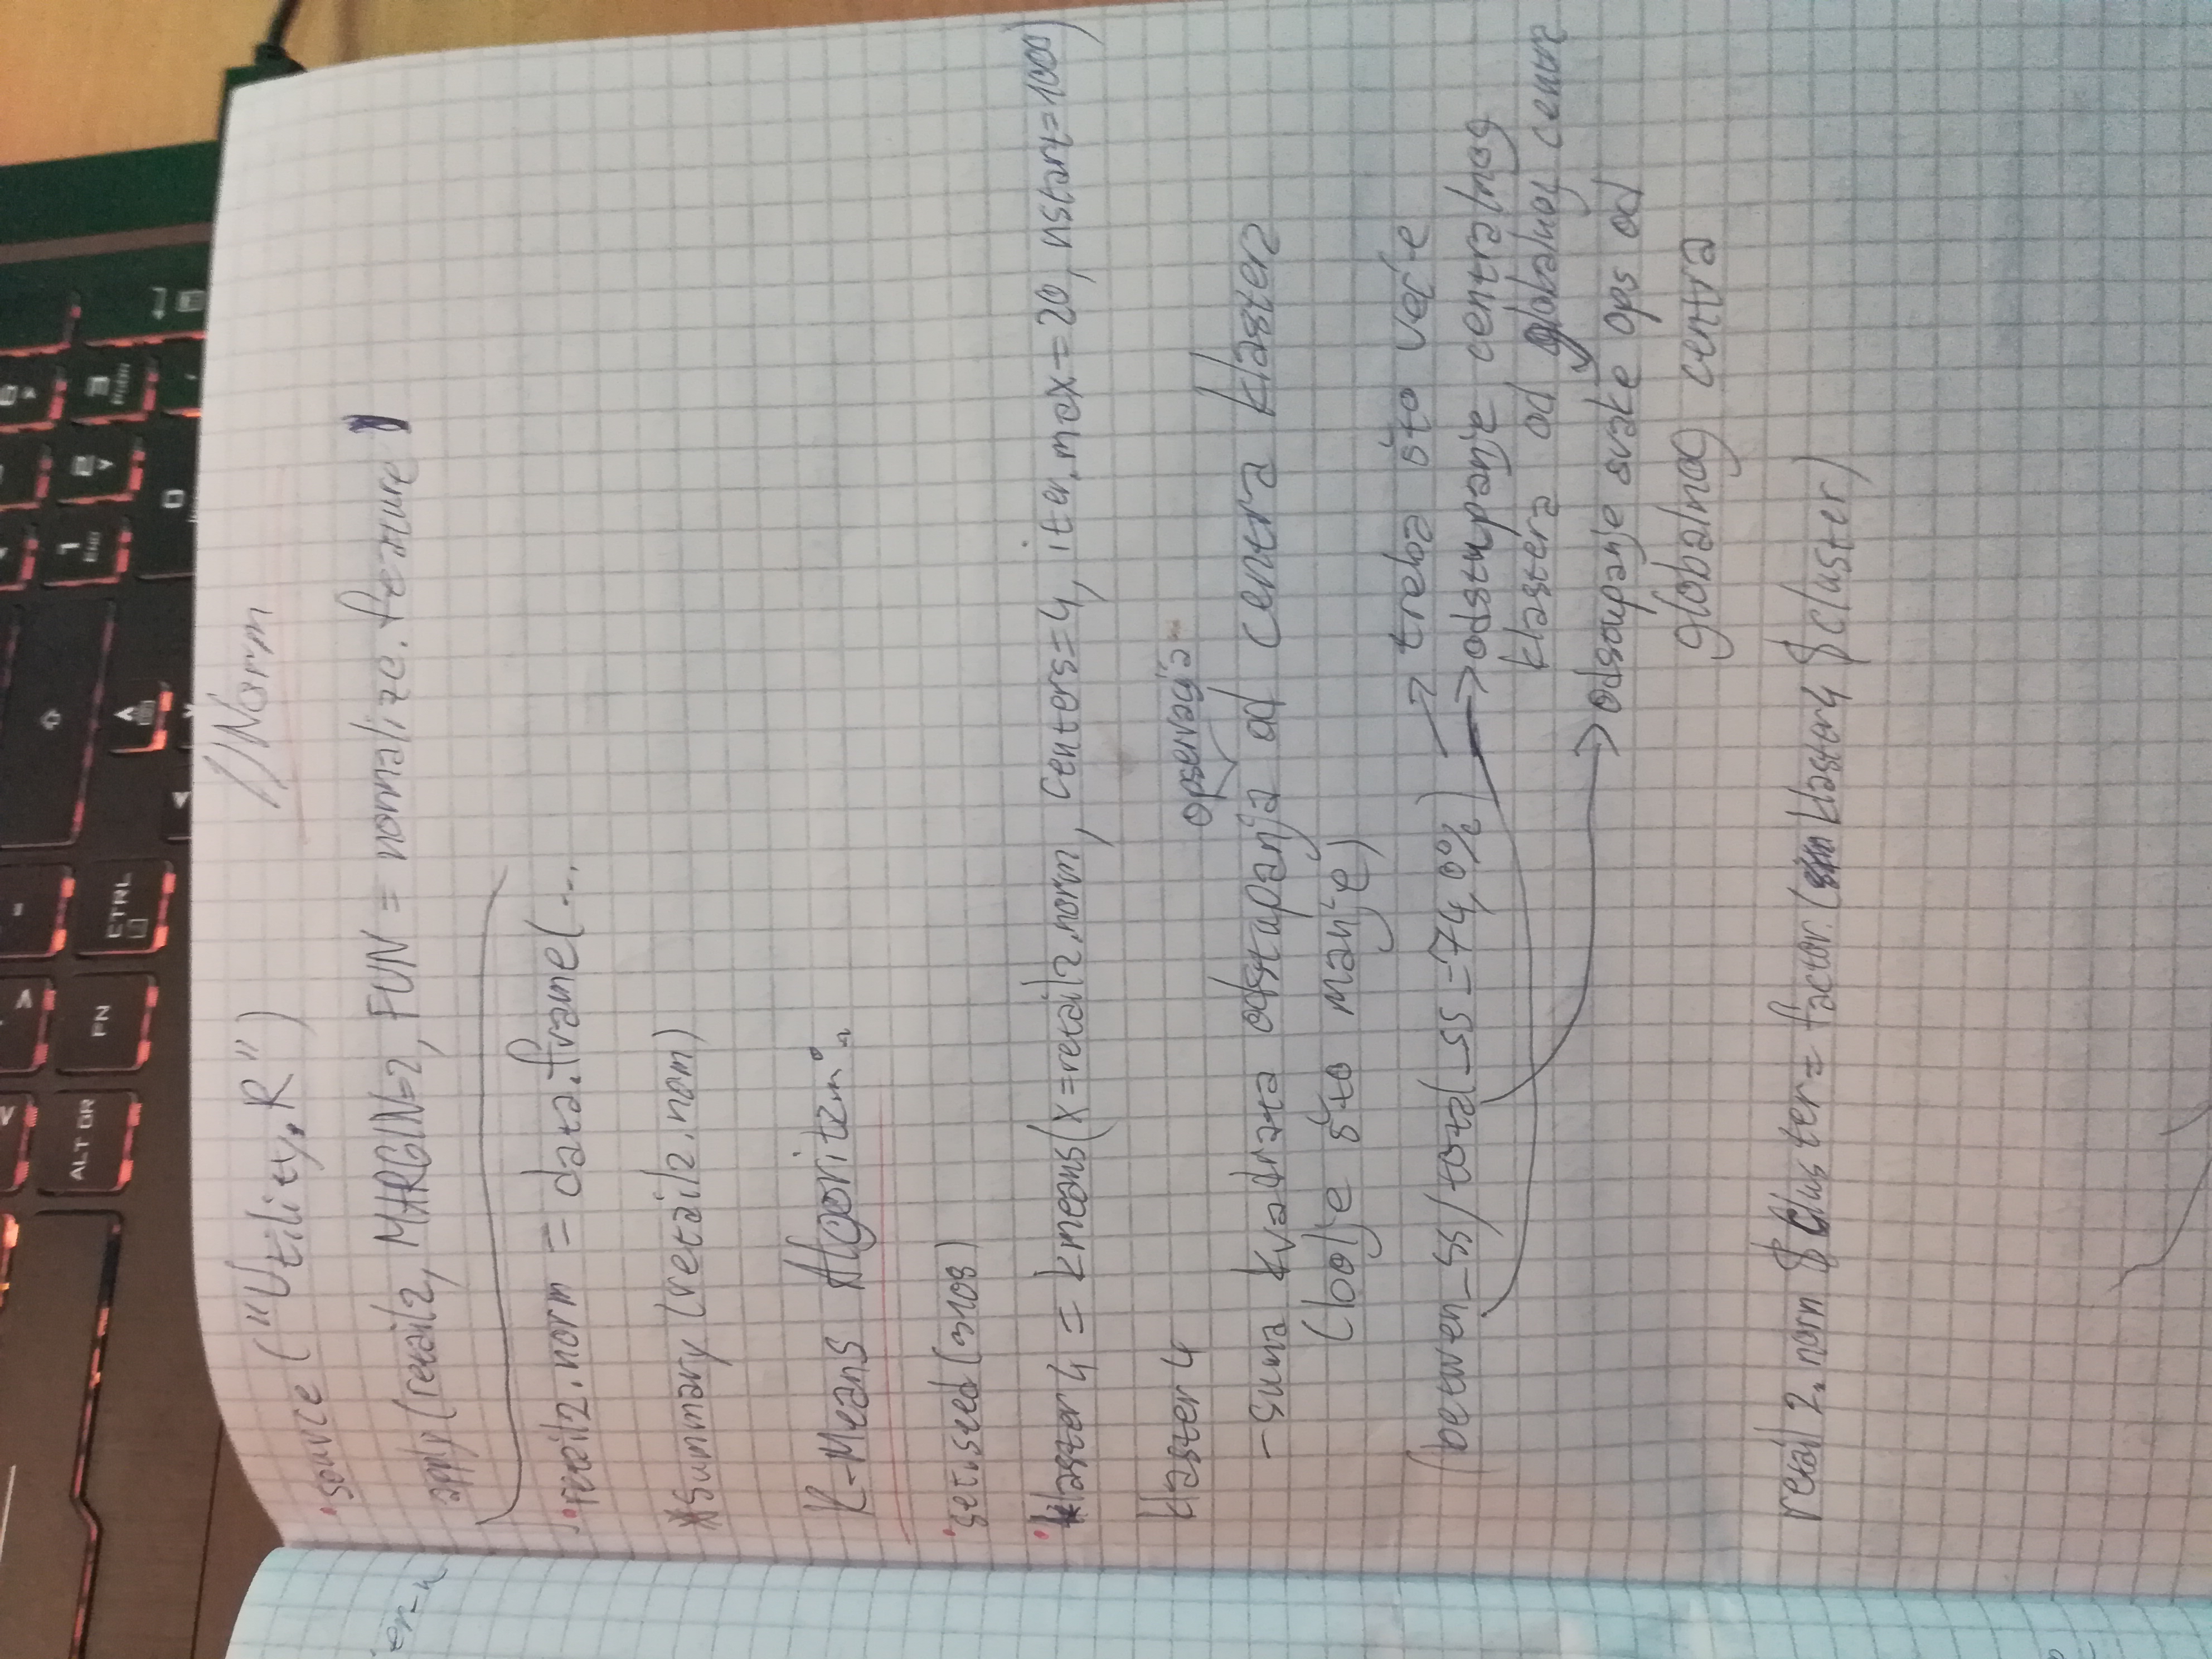 ALT GR
FN
CTRL
1
End
2
3
PgDn
0
er-n
source ("Utility.R") //Norm
apply (retail2, MARGIN=2, FUN = normalize.feature)
retail2.norm = data.frame(...
*Summary (retail2.nom)
K-Means Algoritam:
set.seed (3108)
klaster 4 = kmeans(x=retail2.norm, centers=4, iter.max=20, nstart=1000)
klaster 4
opservacija
-suma kvadrata odstupanja od centra klastera
(bolje što manje)
(betwen_SS/total_SS=74,0%) → treba što veće
→ odstupanje centralnog
klastera od globalnog centra
→ odstupanje svake ops od
globalnog centra
retail 2.norm $ cluster = factor. (klaster4 $ cluster)